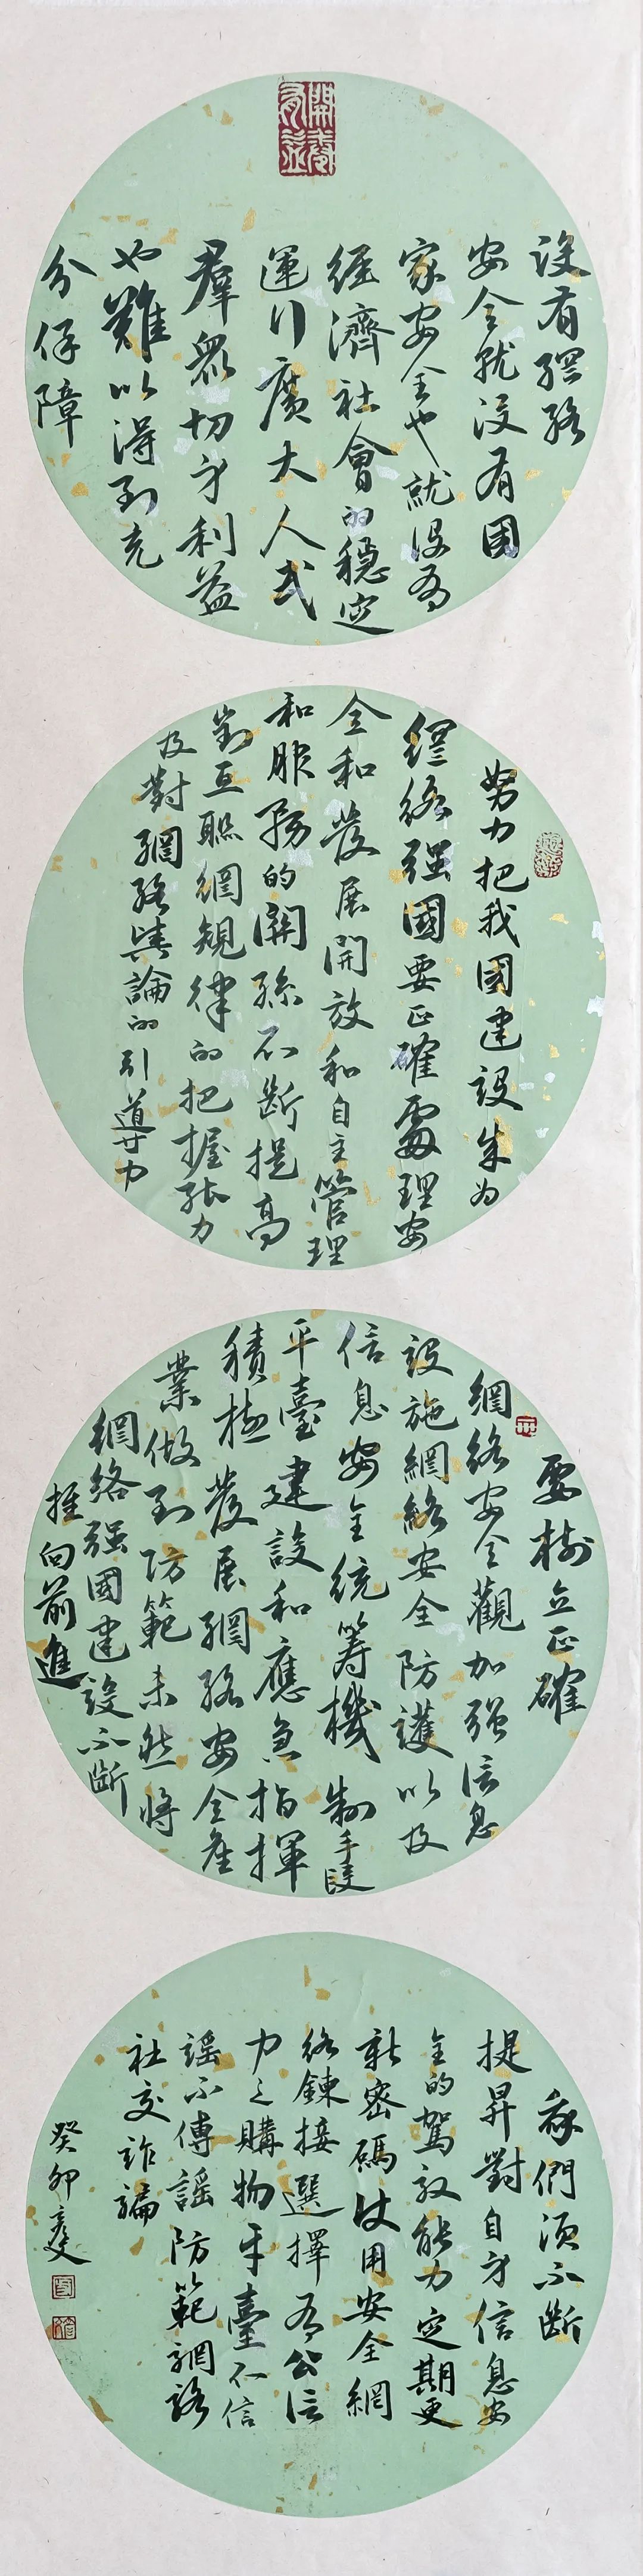 開卷
有益
没有網絡
安全就没有國
家安全也就没有
經濟社會的穩定
運行廣大人民
羣衆切身利益
也難以得到充
分保障
努力把我國建設成為
網絡强國要正確處理安
全和發展開放和自主管理
和服務的關係不斷提高
對互聯網規律的把握能力
及對網絡輿論的引導力
要樹立正確
網絡安全觀加强信息
設施網絡安全防護以及
信息安全統籌機制手段
平臺建設和應急指揮
積極發展網絡安全產
業做到防範未然將
網絡强國建設不斷
推向前進
我們須不斷
提昇對自身信息安
全的駕馭能力定期更
新密碼使用安全網
絡鍊接選擇有公信
力之購物平臺不信
謡不傳謡防範網絡
社交詐騙
癸卯